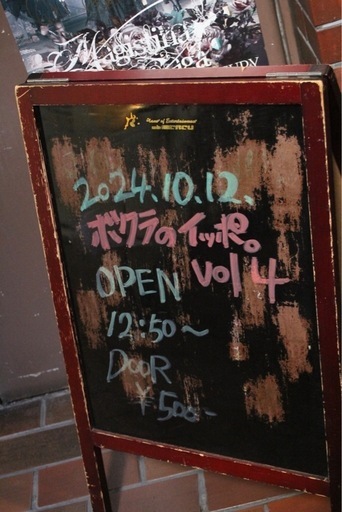 Planet of Entertainment
2024.10.12.
ボクラのイッポ。
vol 4
OPEN
12:50~
DOOR
¥500-